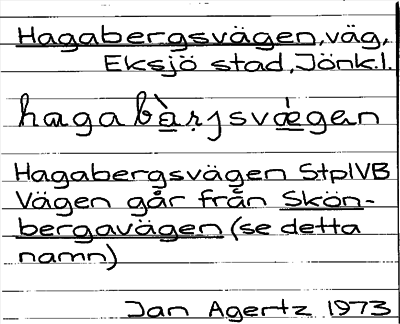 Hagabergsvägen, väg,
Eksjö stad, Jönk.l.
hagabà̱ṛjsvǽ̱gen
Hagabergsvägen StplVB
Vägen går från Skön-
bergavägen (se detta
namn)
Jan Agertz 1973